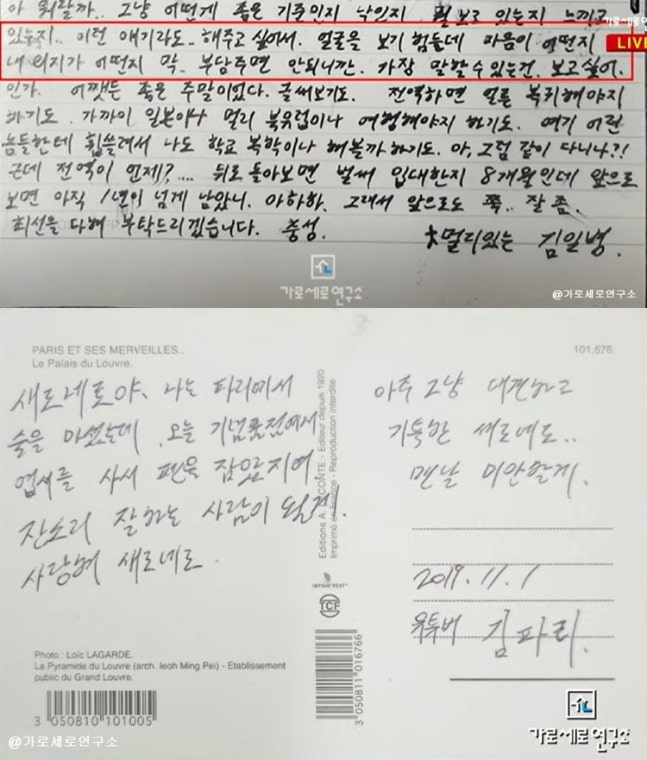 아 뭐랄까.. 그냥 어떻게 좋은 기준인지 낙인지 보고 있는지 느끼고
있는지.. 이런 얘기라도.. 해주고 싶어서. 얼굴을 보기 힘든데 마음이 어떤지
내 의지가 어떤지 막.. 부담주면 안되니깐. 가장 말할 수 있는건. 보고싶어.
인가. 어쨋든 좋은 주말이었다. 글써보기도. 전역하면 얼른 복귀해야지
하기도. 가까이 일본이나 멀리 북유럽이나 여행해야지 하기도. 여기 어린
놈들한테 휩쓸려서 나도 학교 복학이나 해볼까 하기도. 아, 그럼 같이 다니나?!
근데 전역이 언제?.... 뒤로 돌아보면 벌써 입대한지 8개월인데 앞으로
보면 아직 1년이 넘게 남았니. 아하하. 그래서 앞으로도 쭉.. 잘 좀.
최선을 다해 부탁드리겠습니다. 충성.
멀리있는 김일병.
가로세로연구소
LIVE
가로세로연구소
@가로세로연구소
PARIS ET SES MERVEILLES...
Le Palais du Louvre.
101.676
새로네로야. 나는 파리에서
술을 마셨는데. 오늘 기념품점에서
엽서를 사서 펜을 잡았지여
잔소리 잘하는 사람이 될게.
사랑해 새로네로.
아주 그냥 대견하고
기특한 새로네로..
맨날 미안할게.
2019. 11. 1
유튜버 김파리.
Editions A. LECONTE - Editeur depuis 1920
Imprimé en France - Reproduction interdite
IMPRIM'VERT
TCF
Photo : Loïc LAGARDE.
La Pyramide du Louvre (arch. Ieoh Ming Pei) - Etablissement
public du Grand Louvre.
3 050810 101005
3 050811 016766
@가로세로연구소
가로세로연구소